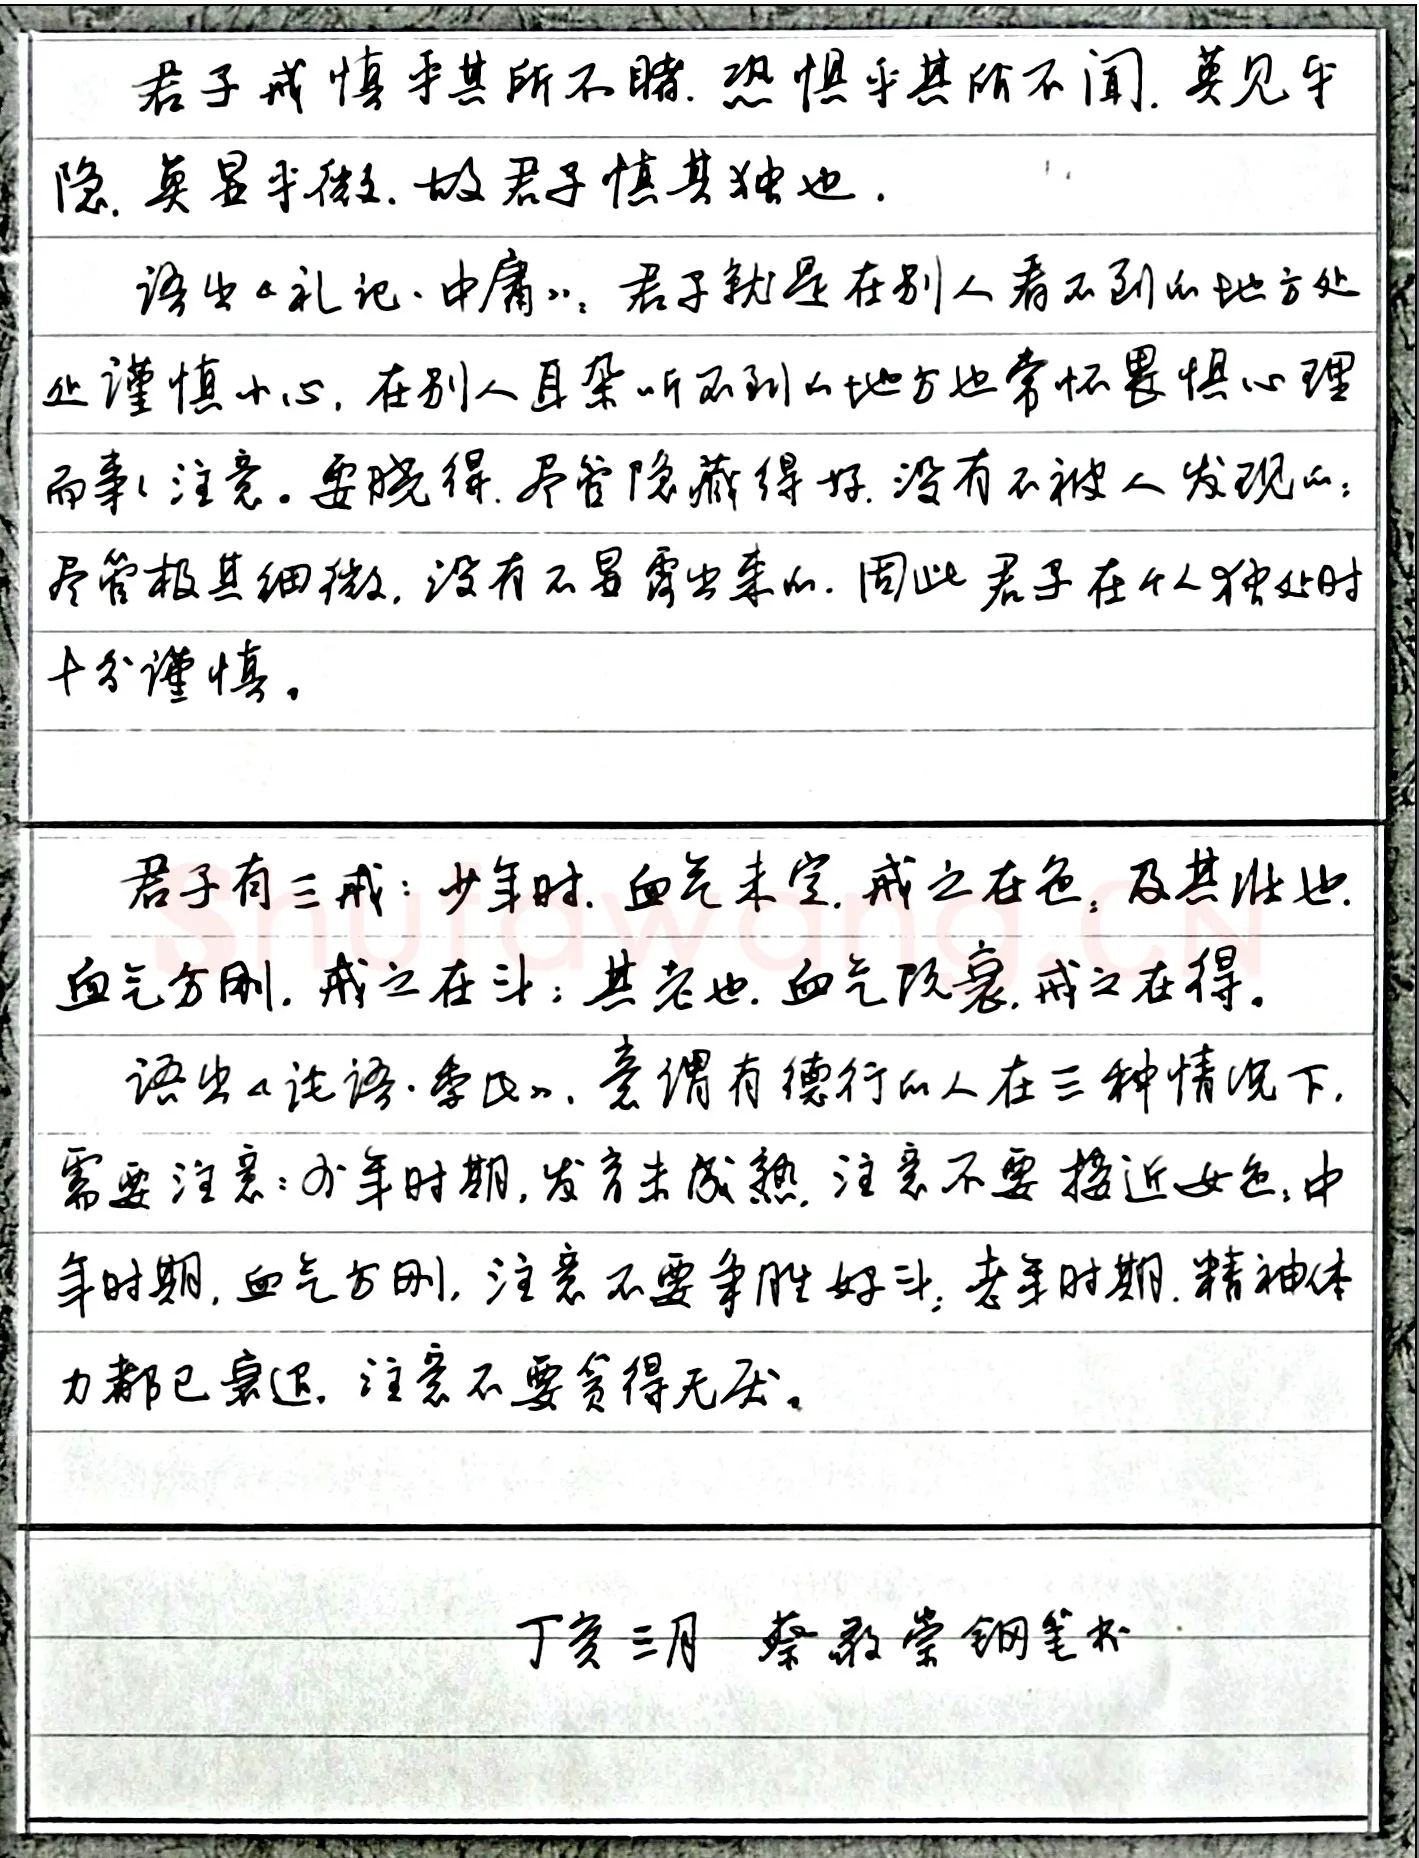 君子戒慎乎其所不睹，恐惧乎其所不闻，莫见乎
隐，莫显乎微，故君子慎其独也。
语出《礼记·中庸》：君子就是在别人看不到的地方处
处谨慎小心，在别人耳朵听不到的地方也常怀畏惧心理
而事事注意。要晓得，尽管隐藏得好，没有不被人发现的；
尽管极其细微，没有不显露出来的，因此君子在个人独处时
十分谨慎。
君子有三戒：少年时，血气未定，戒之在色；及其壮也，
血气方刚，戒之在斗；其老也，血气既衰，戒之在得。
语出《论语·季氏》，意谓有德行的人在三种情况下，
需要注意：少年时期，发育未成熟，注意不要接近女色；中
年时期，血气方刚，注意不要争胜好斗；老年时期，精神体
力都已衰退，注意不要贪得无厌。
丁亥三月 蔡敬崇钢笔书
Shufawang.CN